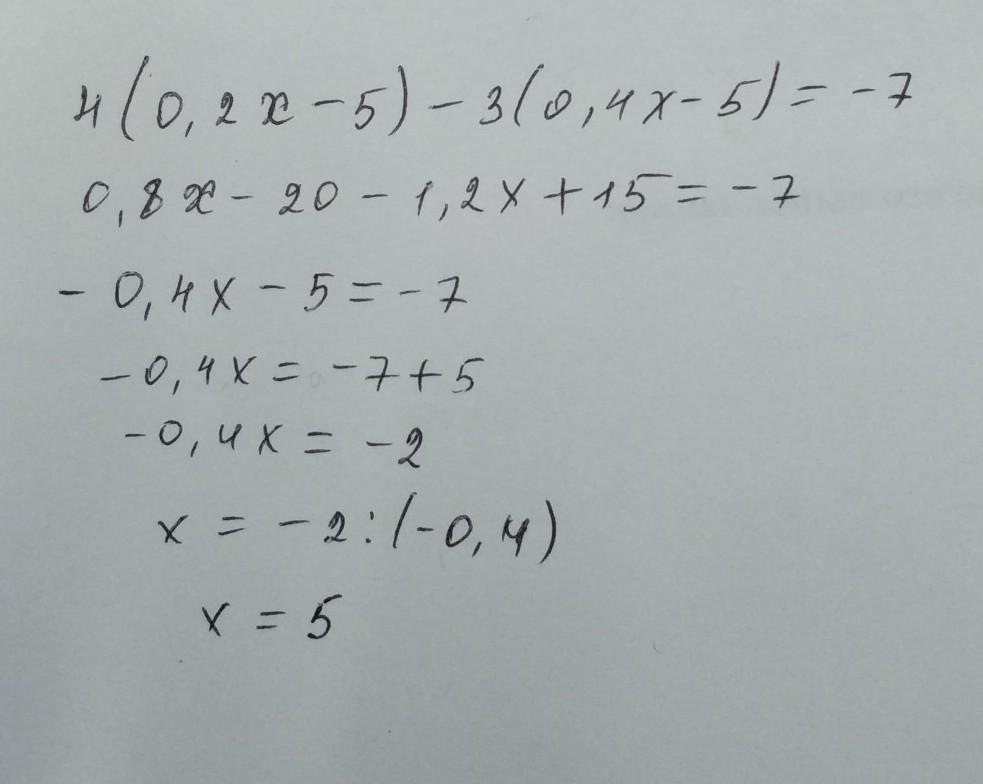 4(0,2x-5)-3(0,4x-5)=-7
0,8x-20-1,2x+15=-7
-0,4x-5=-7
-0,4x=-7+5
-0,4x=-2
x=-2:(-0,4)
x=5